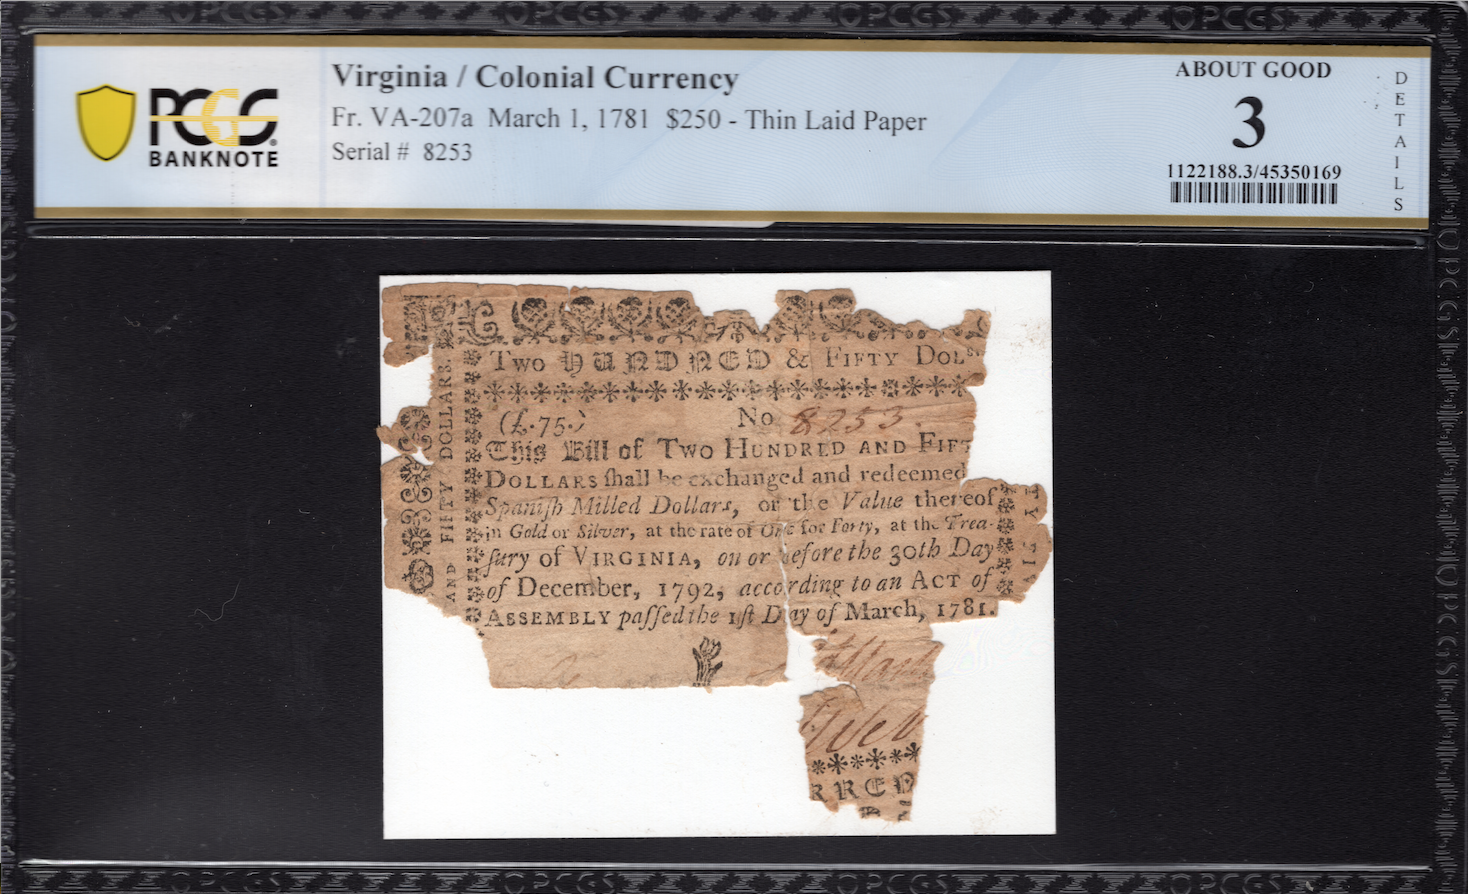 PCGS
BANKNOTE
Virginia / Colonial Currency
Fr. VA-207a March 1, 1781 $250 - Thin Laid Paper
Serial # 8253
ABOUT GOOD
3
1122188.3/45350169
DETAILS
Two HUNDNED & Fifty Dolrs
(£.75.) No 8253.
This Bill of Two Hundred and Fif
Dollars ſhall be exchanged and redeemed
Spaniſh Milled Dollars, or the Value thereof
in Gold or Silver, at the rate of One for Forty, at the Trea-
ſury of Virginia, on or before the 30th Day
of December, 1792, according to an Act of
Assembly paſſed the 1ſt Day of March, 1781.
RREN
AND FIFTY DOLLARS.
TY FI